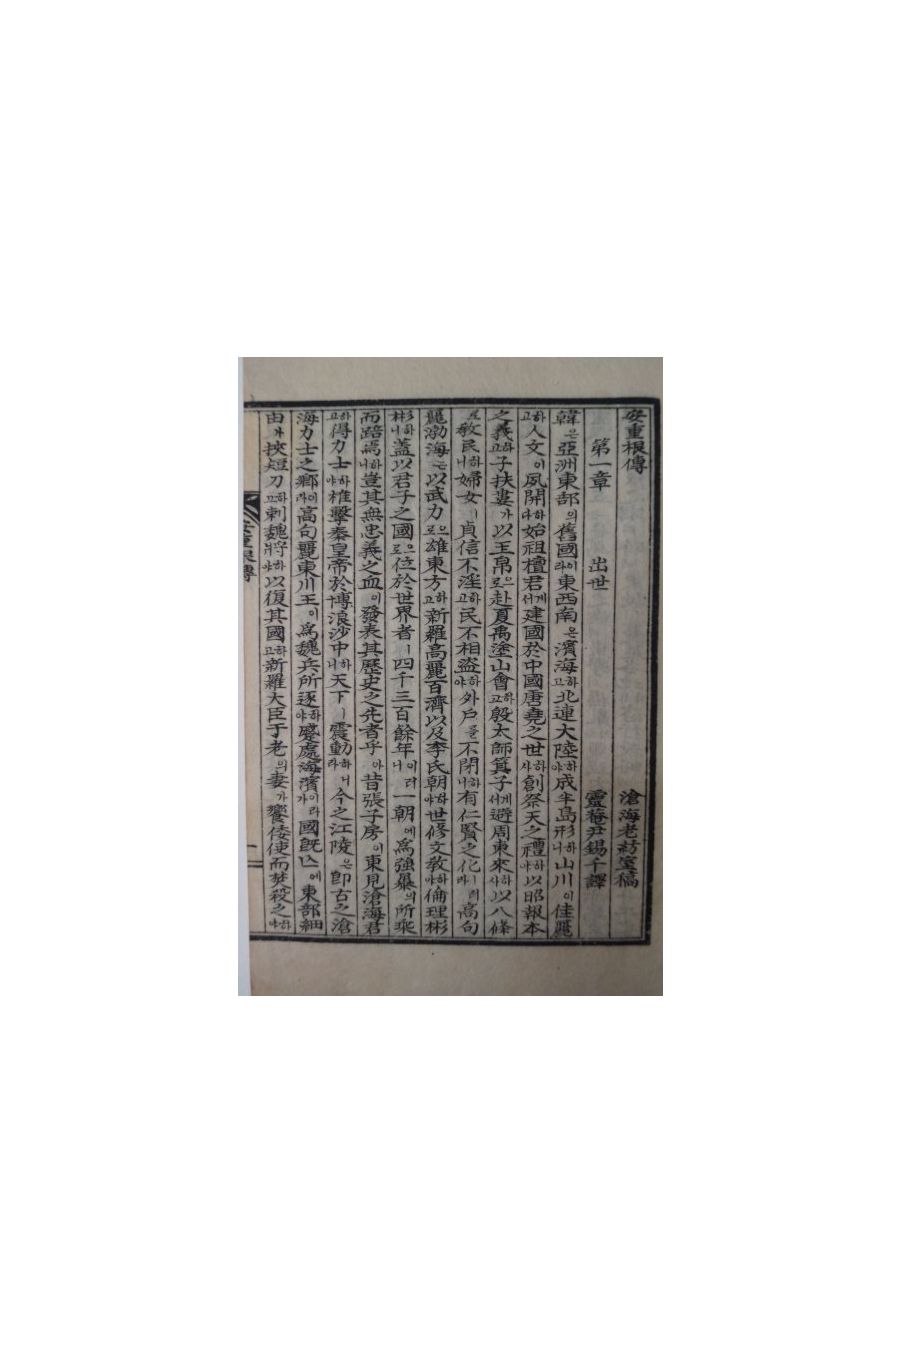 安重根傳 滄海老紡室稿
第一章 出世 靈菴尹錫千譯
韓은亞洲東部의舊國이라東西南은濱海하고北連大陸하야成半島形하니山川이佳麗
하고人文이夙開하다始祖檀君게서建國於中國唐堯之世하사創祭天之禮하야以昭報本
之義하고子扶婁가以玉帛으로赴夏禹塗山會하고殷太師箕子게서避周東來하사以八條
로敎民하니婦女ㅣ貞信不淫하고民不相盜하야外戶를不閉하니有仁賢之化러라高句
麗渤海는以武力으로雄東方하고新羅高麗百濟以及李氏朝하야世修文敎하야倫理彬
彬하니盖以君子之國으로位於世界者ㅣ四千三百餘年이러니一朝에爲强暴의所乘
而踣焉하니豈其無忠義之血이發表其歷史之先者乎아昔張子房이東見滄海君
하고得力士하야椎擊秦皇帝於博浪沙中하니天下ㅣ震動하니라今之江陵은卽古之滄
海力士之鄕이라高句麗東川王이爲魏兵所逐하야蹙處海濱이라가國旣亡에東部紐
由가挾短刀하고刺魏將하야以復其國하고新羅大臣于老의妻가饗倭使而焚殺之하야
安重根傳
一